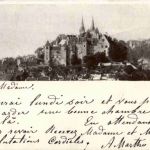 Madame,
rai lundi soir et vous p
arder une bonne chambre
En attendan
revoir Recevez Madame et M
utations Cordiales. A. Marthe